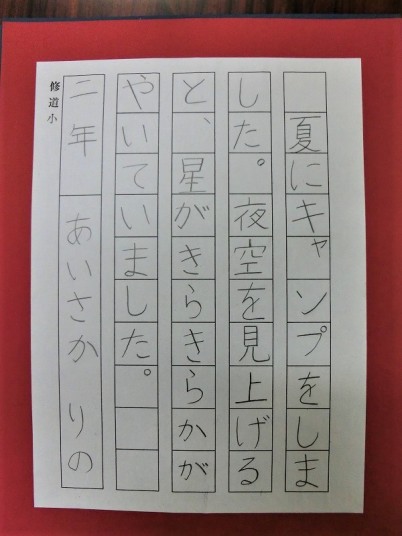 夏にキャンプをしま
した。夜空を見上げる
と、星がきらきらかが
やいていました。
二年 あいさか りの
修道小